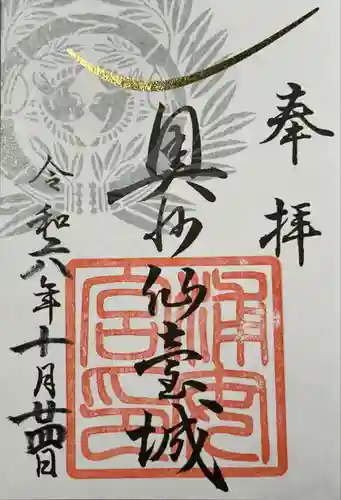 奉拝
奥州仙臺城
令和六年十月廿四日